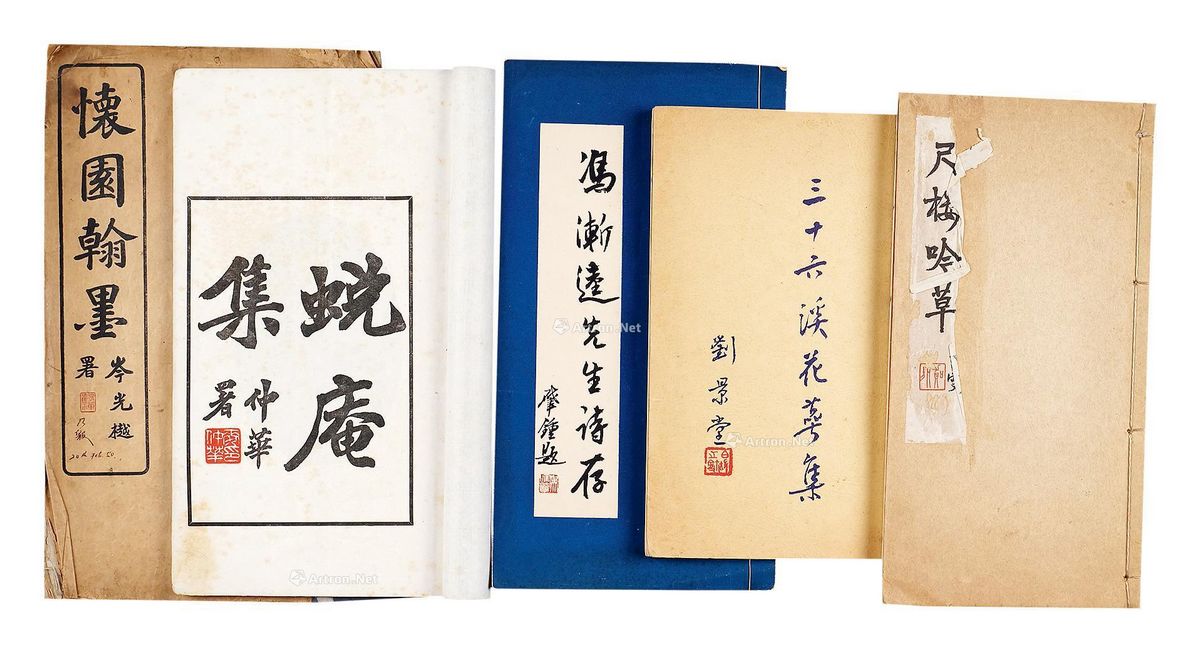 懷園翰墨
岑光樾
署
蜕庵
集
仲華
署
馮漸逵先生诗存
肇鍾題
三十六溪花萼集
劉景堂
尺梅吟草
Artron.Net
Artron.Net
Artron.Net